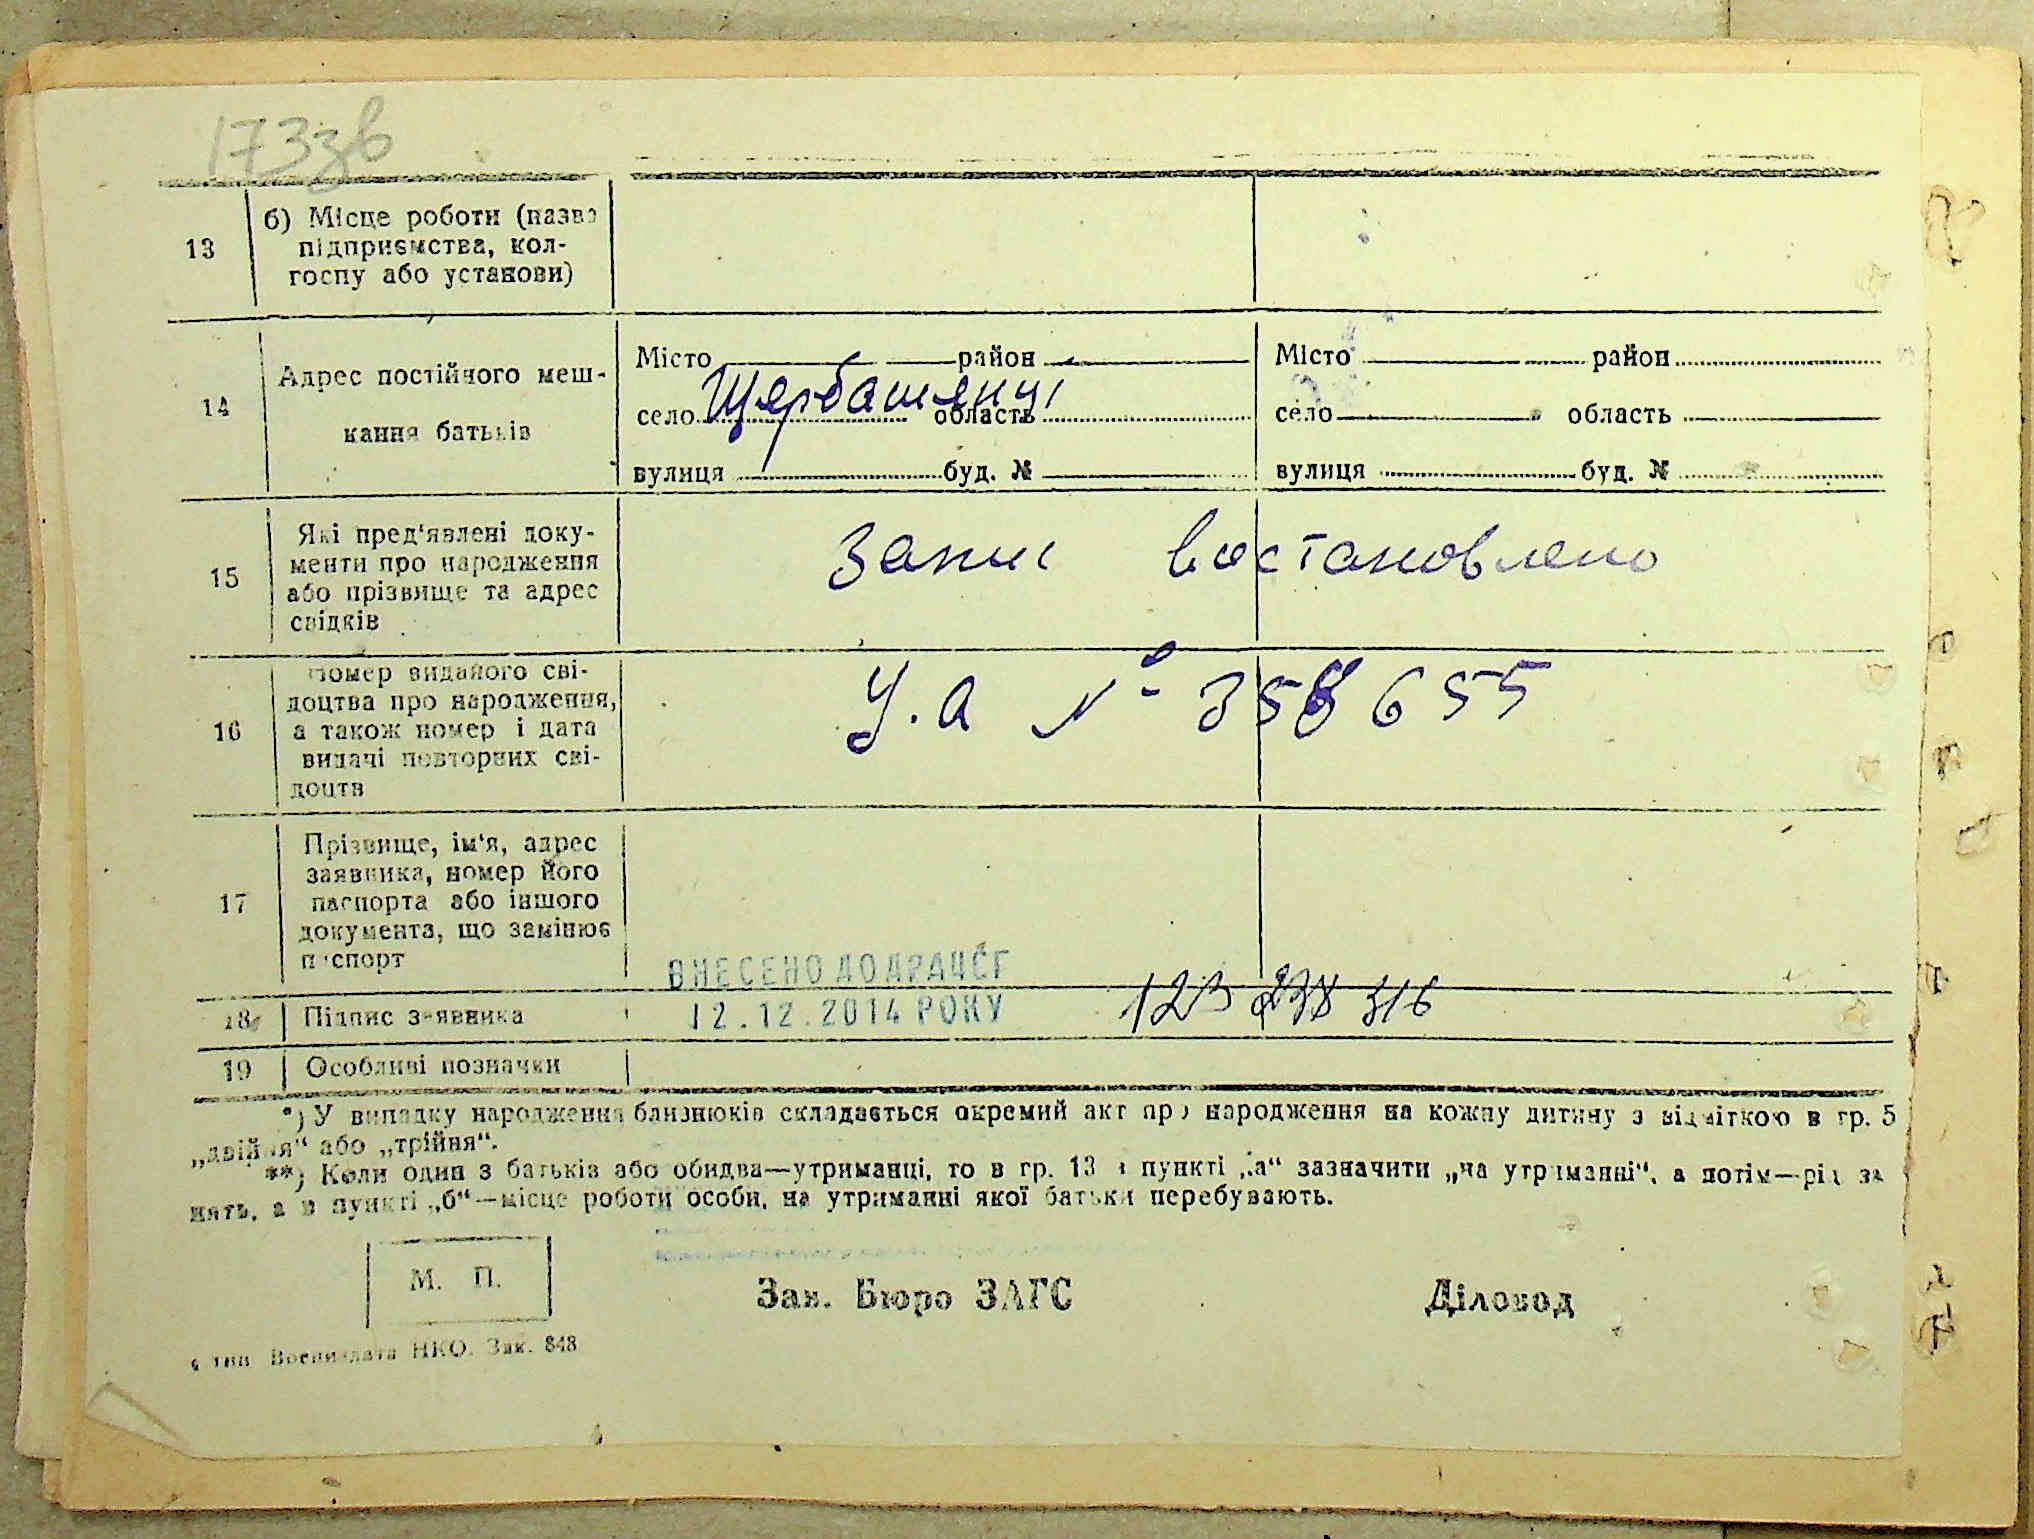 173зв
13
б) Місце роботи (назва
підприємства, кол-
госпу або установи)
14
Адрес постійного меш-
кання батьків
Місто район
село Щербашенці область
вулиця буд. №
Місто район
село область
вулиця буд. №
15
Які пред'явлені доку-
менти про народження
або прізвище та адрес
свідків
Запис востановлено
16
Номер виданого сві-
доцтва про народження,
а також номер і дата
видачі повторних сві-
доцтв
У.а № 358655
17
Прізвище, ім'я, адрес
заявника, номер його
паспорта або іншого
документа, що замінює
паспорт
ВНЕСЕНО ДО ДРАЦСГ
12.12.2014 РОКУ
123 238 316
18
Підпис заявника
19
Особливі позначки
*) У випадку народження близнюків складається окремий акт про народження на кожну дитину з відміткою в гр. 5
„двійня“ або „трійня“.
**) Коли один з батьків або обидва—утриманці, то в гр. 13 в пункті „а“ зазначити „на утриманні“, а потім—рід за
нять, а в пункті „б“—місце роботи особи, на утриманні якої батьки перебувають.
М. П.
Зав. Бюро ЗАГС
Діловод
тип Воениздата НКО. Зак. 848